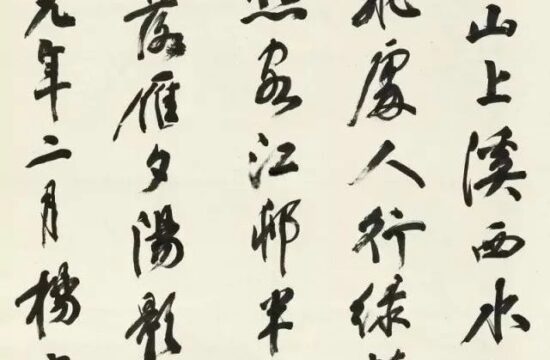 山上溪西水
處人行綠
江邨半
落雁夕陽影
元年二月楊